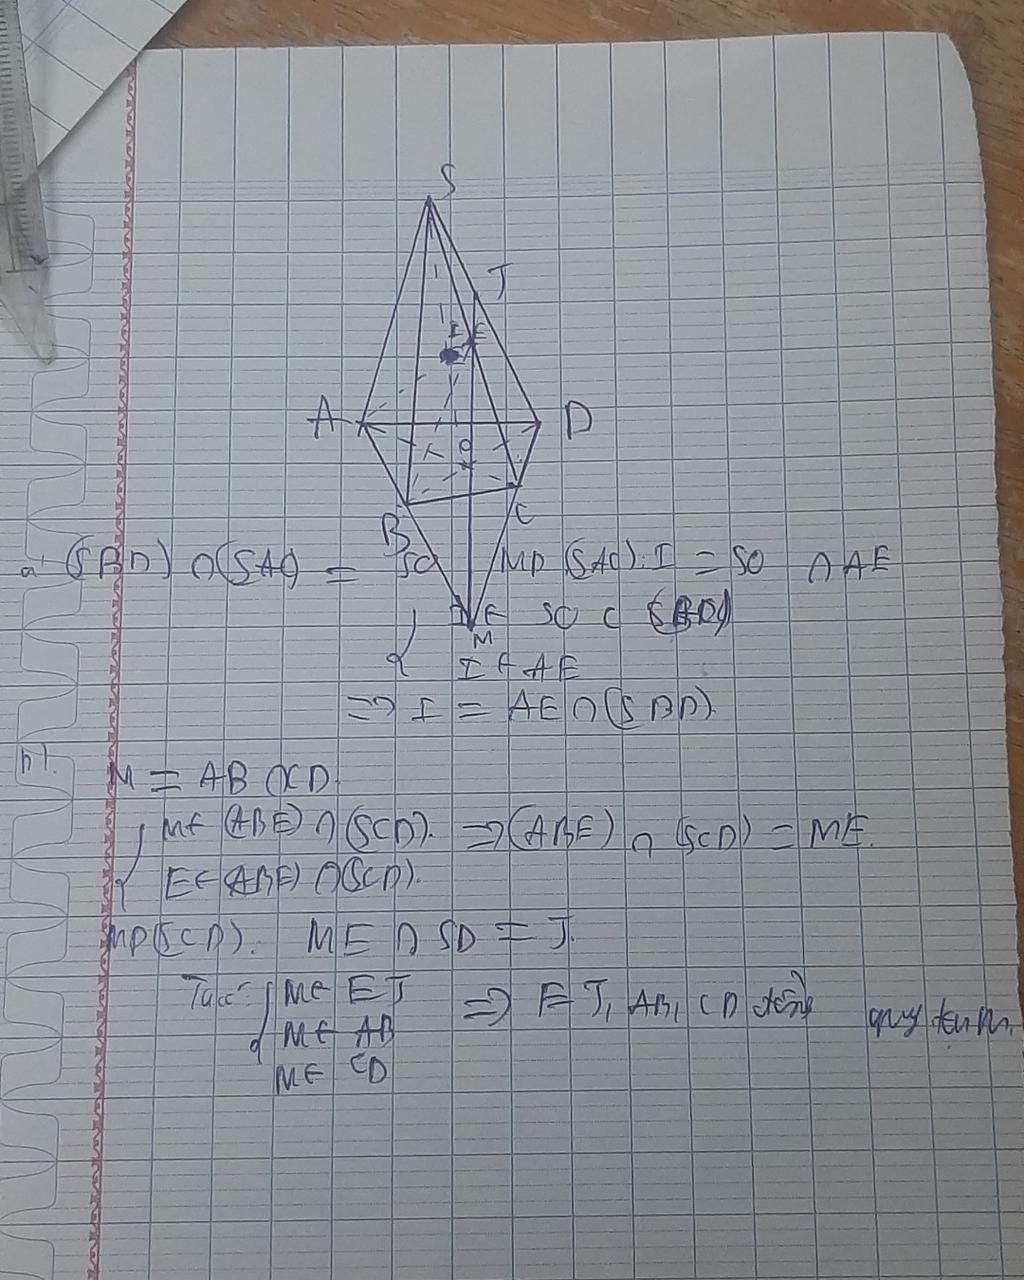 S
J
I E
A D
O
B C
a) (SBD) ∩ (SAC) = SO MP (SAC): I = SO ∩ AE
{ I ∈ SO ⊂ (SBD)
M
I ∈ AE
=> I = AE ∩ (SBD).
b). M = AB ∩ CD.
{ M ∈ (ABE) ∩ (SCD). => (ABE) ∩ (SCD) = ME.
E ∈ (ABE) ∩ (SCD).
MP (SCD). ME ∩ SD = J.
Ta có: { M ∈ EJ => EJ, AB, CD đồng quy tại M.
M ∈ AB
M ∈ CD